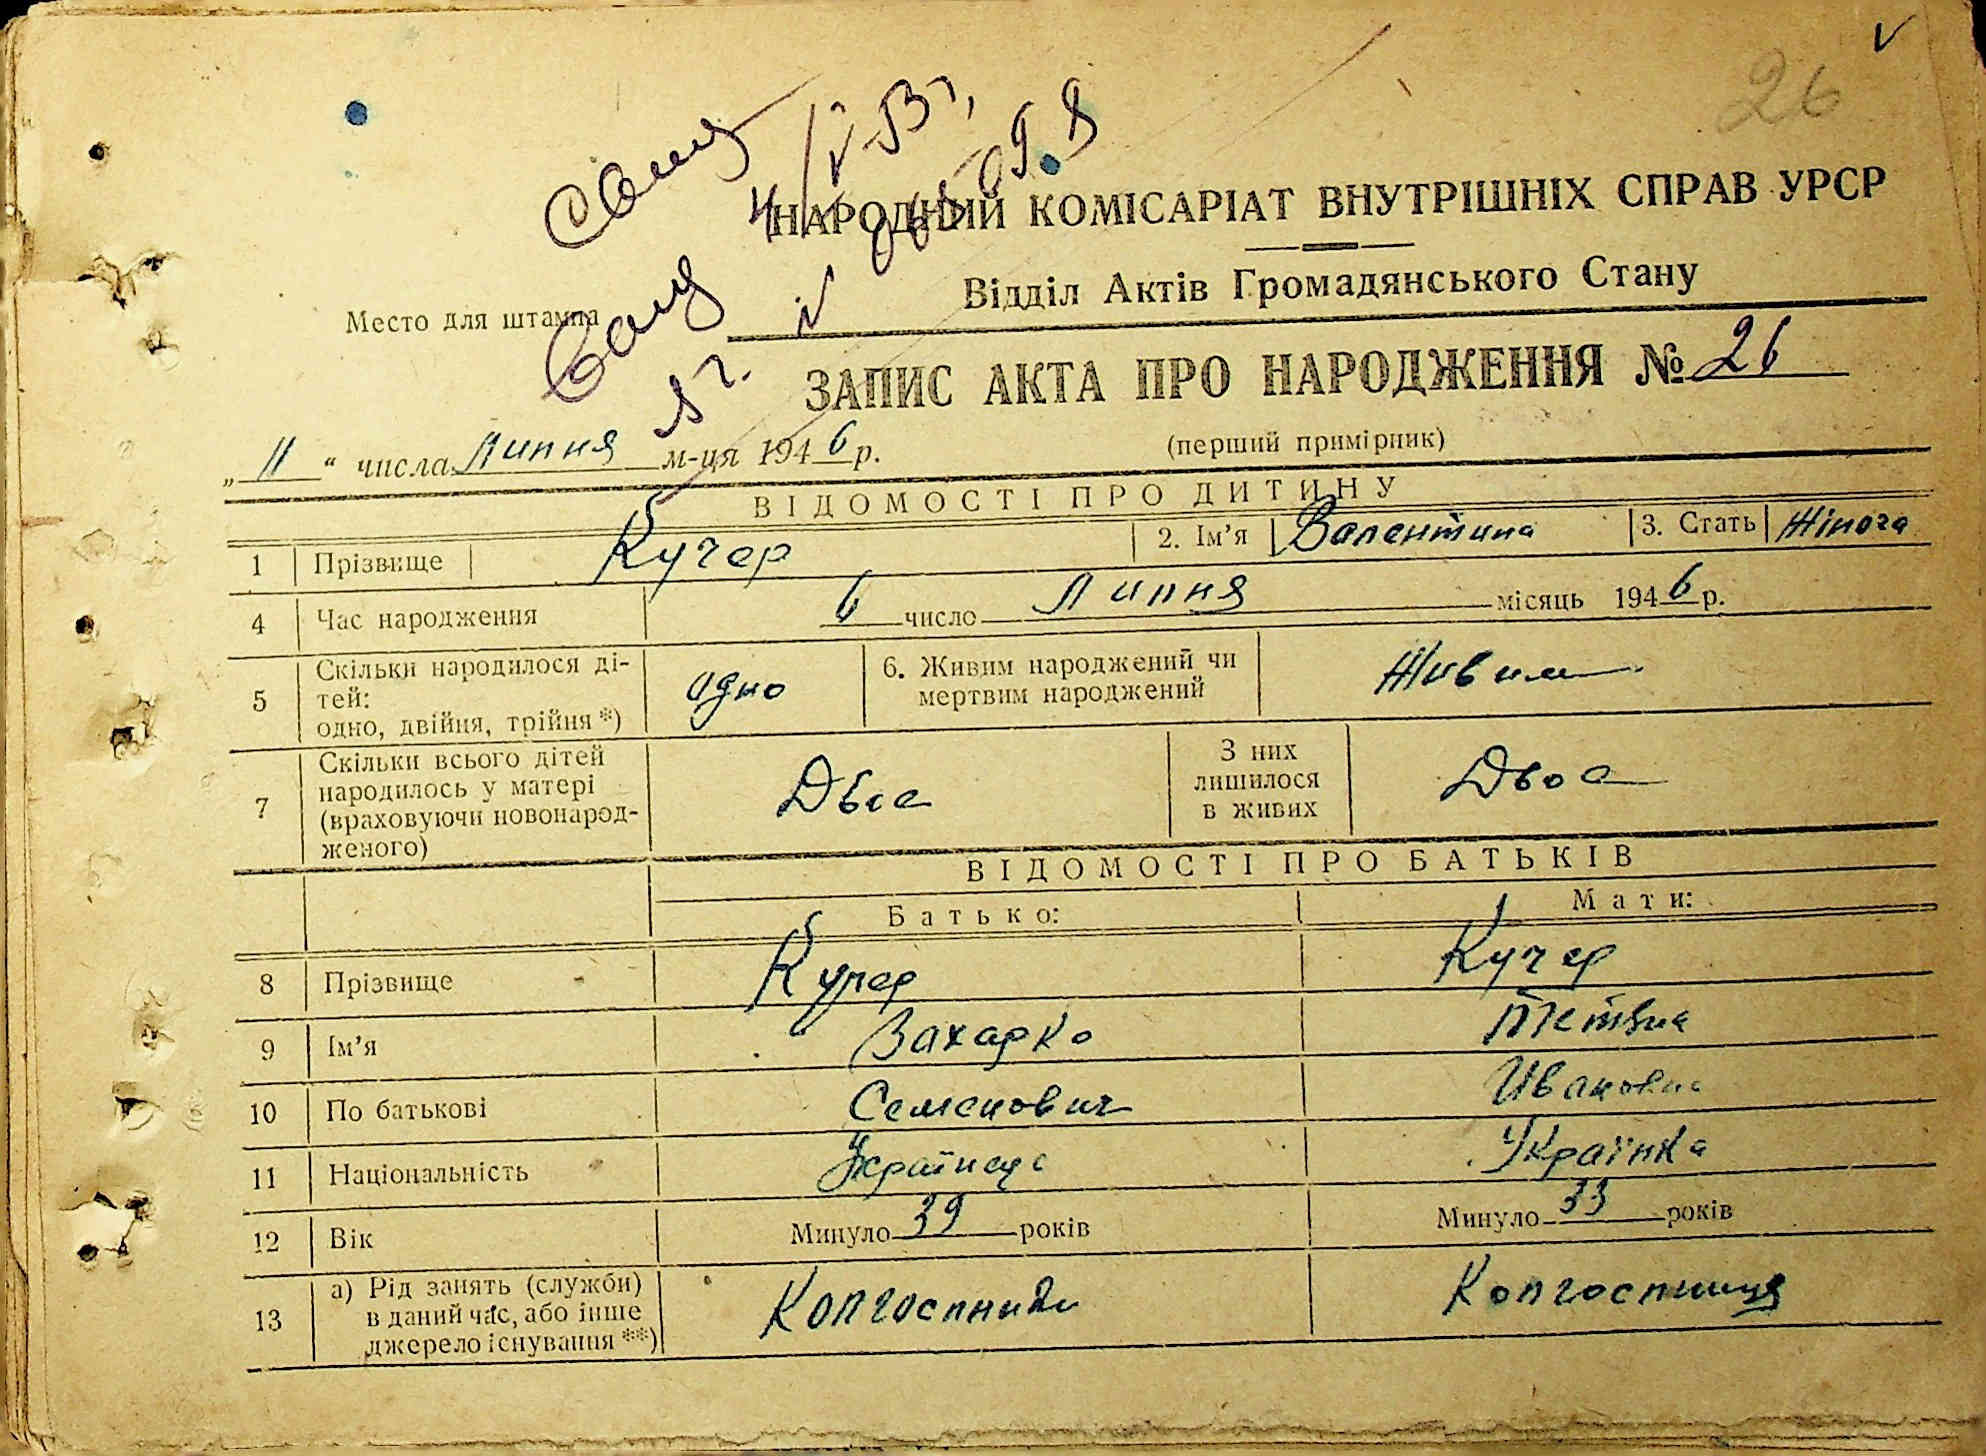 26
НАРОДНИЙ КОМІСАРІАТ ВНУТРІШНІХ СПРАВ УРСР
Відділ Актів Громадянського Стану
Место для штампа
ЗАПИС АКТА ПРО НАРОДЖЕННЯ № 26
(перший примірник)
„ 11 “ числа Липня м-ця 1946 р.
ВІДОМОСТІ ПРО ДИТИНУ
1 Прізвище Кучер 2. Ім’я Валентина 3. Стать Жіноча
4 Час народження 6 число Липня місяць 1946 р.
5 Скільки народилося ді-
тей:
одно, двійня, трійня *) одно 6. Живим народжений чи
мертвим народжений Живим
7 Скільки всього дітей
народилось у матері
(враховуючи новонарод-
женого) Двоє З них
лишилося
в живих Двоє
ВІДОМОСТІ ПРО БАТЬКІВ
Батько: Мати:
8 Прізвище Кучер Кучер
9 Ім’я Захарко
10 По батькові Семенович Ивановна
11 Національність Українець Українка
12 Вік Минуло 39 років Минуло 33 років
13 а) Рід занять (служби)
в даний час, або інше
джерело існування **) Колгоспник Колгоспниця